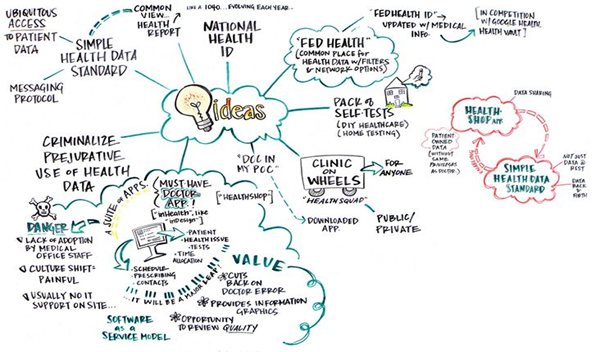 UBIQUITOUS
ACCESS
TO PATIENT
DATA
MESSAGING
PROTOCOL
SIMPLE
HEALTH DATA
STANDARD
COMMON
VIEW
HEALTH
REPORT
LIKE A 1040...EVOLVING EACH YEAR.
NATIONAL
HEALTH
ID
"FED HEALTH"
(COMMON PLACE for
HEALTH DATA W/FILTERS
& NETWORK OPTIONS)
"FEDHEALTH ID"
UPDATED W/MEDICAL
INFO.
[IN COMPETITION
W/ GOOGLE HEALTH,
HEALTH VAULT]
ideas
PACK of
SELF-TESTS
(DIY HEALTHCARE)
(HOME TESTING)
CRIMINALIZE
PREJURATIVE
USE OF HEALTH
DATA
"DOC IN
MY POC"
DOWNLOADED
APP.
CLINIC
ON
WHEELS
"HEALTH SQUAD"
FOR
ANYONE
PUBLIC/
PRIVATE
DATA SHARING
HEALTH-
SHOP APP.
PATIENT
OWNED
DATA
(WITHOUT
SAME
PRIVILEGES
AS DOCTOR)
SIMPLE
HEALTH DATA
STANDARD
NOT JUST
DATA @
REST
DATA
BACK &
FORTH
A SUITE of APPS.
(MUST HAVE
DOCTOR
APP!)
["inHealth", like
"inDesign"]
["HEALTHSHOP"]
• PATIENT
• HEALTH ISSUE
• TESTS
• TIME
ALLOCATION
• SCHEDULE
• PRESCRIBING
• CONTACTS
...IT WILL BE A MAJOR LEAP!
DANGER
LACK of ADOPTION
BY MEDICAL
OFFICE STAFF
CULTURE SHIFT=
PAINFUL
USUALLY NO IT
SUPPORT ON SITE...
SOFTWARE
as a
SERVICE MODEL
VALUE
CUTS
BACK ON
DOCTOR ERROR
PROVIDES INFORMATION
GRAPHICS
OPPORTUNITY
TO REVIEW QUALITY